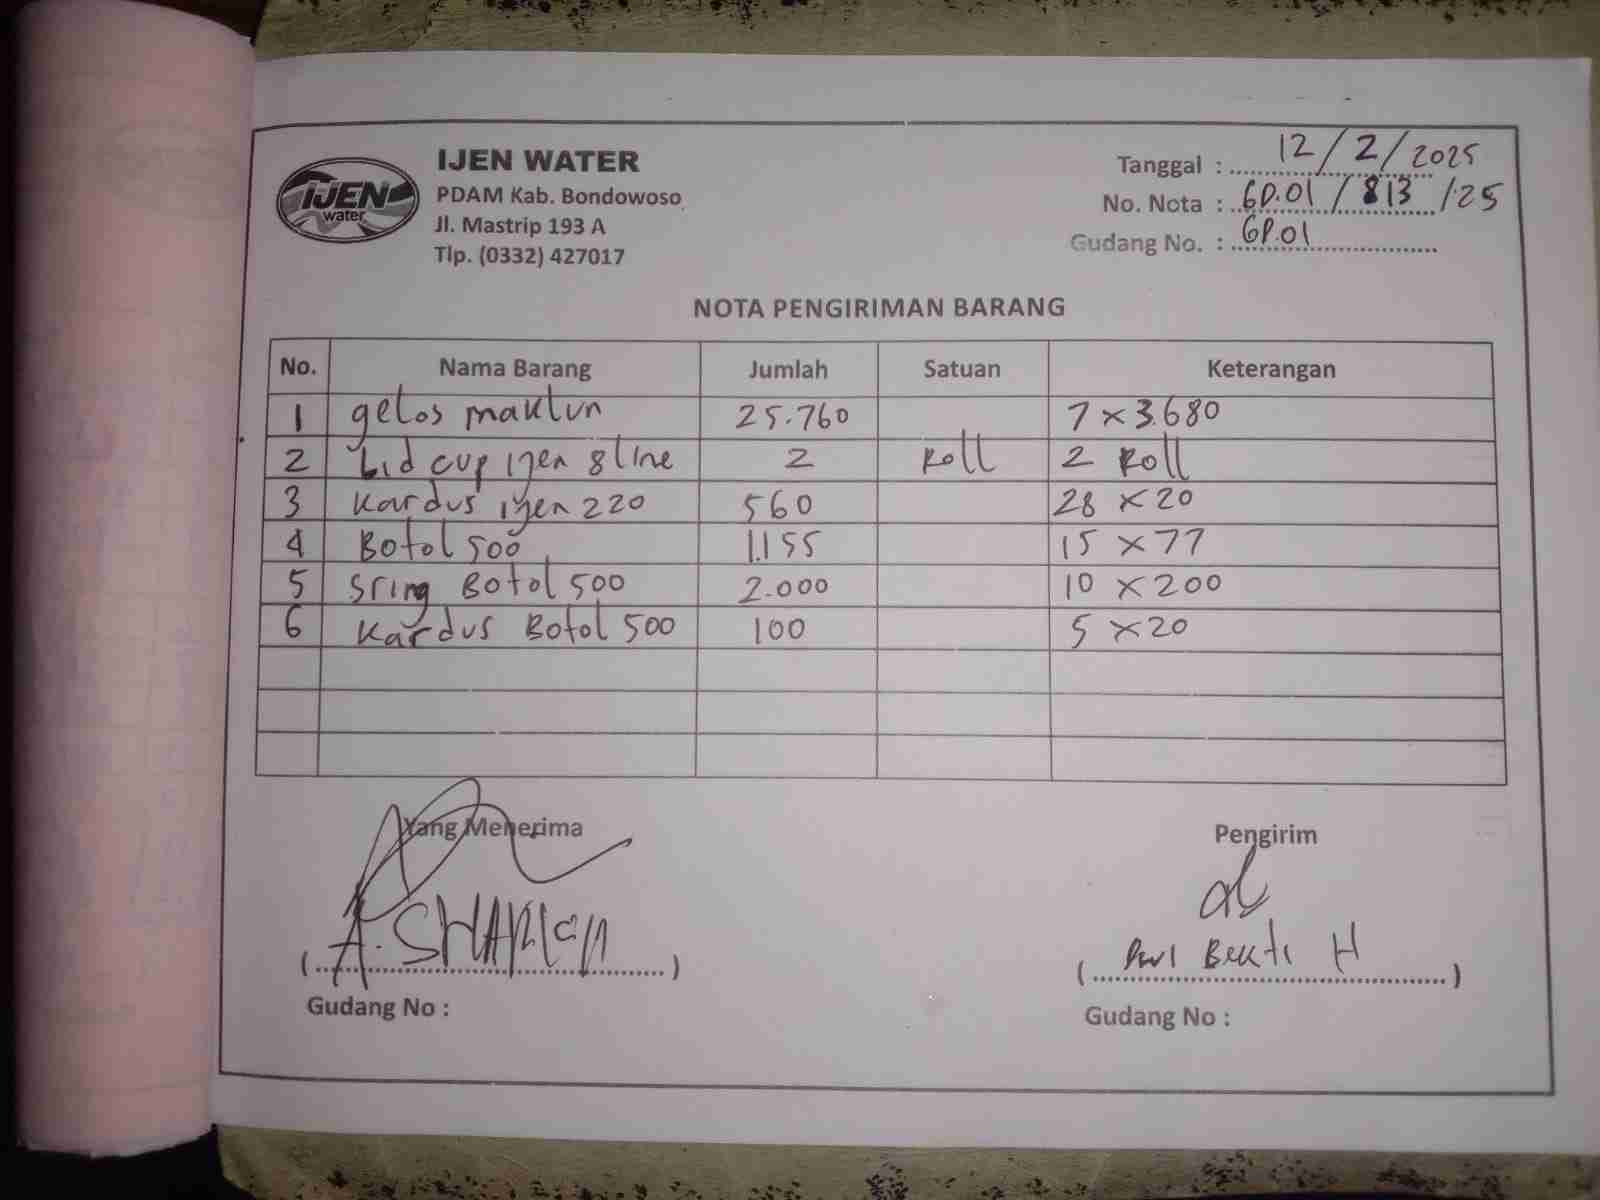 IJEN WATER
PDAM Kab. Bondowoso
Jl. Mastrip 193 A
Tlp. (0332) 427017
IJEN
water
Tanggal : 12/2/2025
No. Nota : GP.01/813/25
Gudang No. : GP.01
NOTA PENGIRIMAN BARANG
No. Nama Barang Jumlah Satuan Keterangan
1 gelas maklun 25.760 7 x 3.680
2 Lid cup ijen 8 line 2 Roll 2 Roll
3 Kardus ijen 220 560 28 x 20
4 Botol 500 1.155 15 x 77
5 Sring Botol 500 2.000 10 x 200
6 Kardus Botol 500 100 5 x 20
Yang Menerima Pengirim
(A. ) ( Bekti H)
Gudang No : Gudang No :